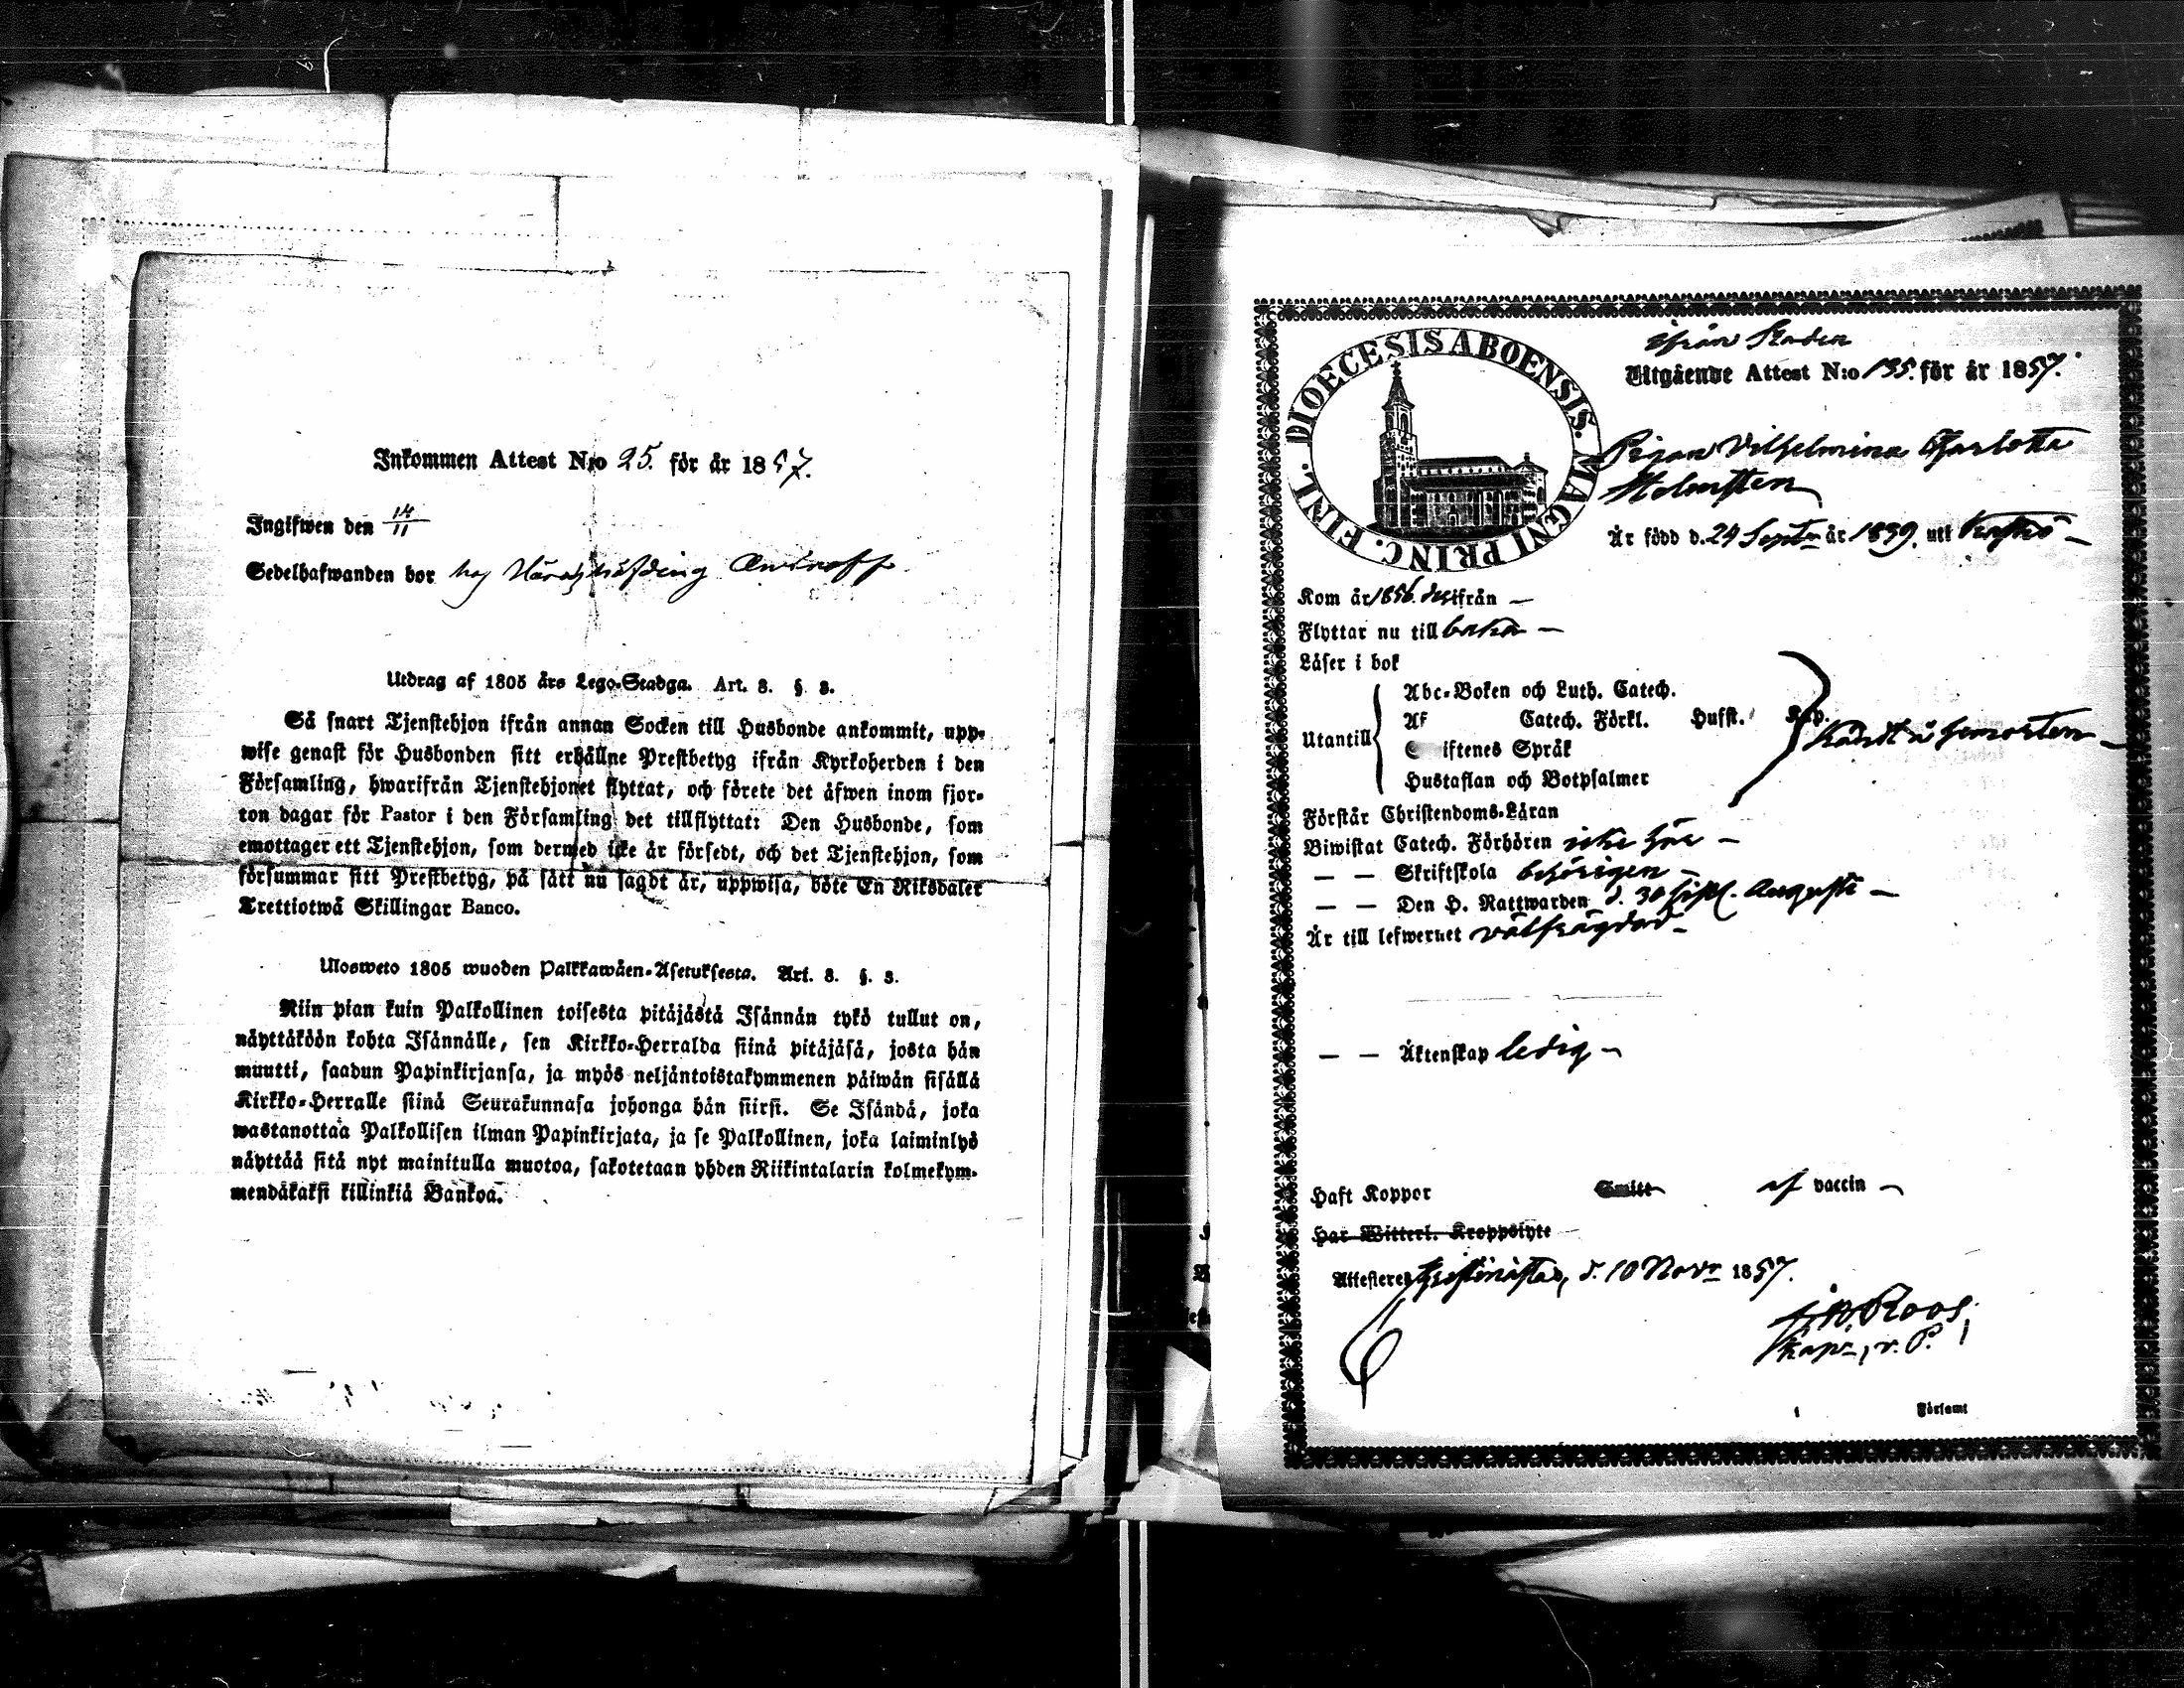 Inkommen Attest N:o 25. för år 1857.
Ingifwen den 14/11
Sedelhafwanden bor hos Häradshöfding
Utdrag af 1805 års Lego-Stadga. Art. 8. §. 3.
Så snart Tjenstehjon ifrån annan Socken till Husbonde ankommit, upp-
wise genast för Husbonden sitt erhållne Prestbetyg ifrån Kyrkoherden i den
Församling, hwarifrån Tjenstehjonet flyttat, och förete det äfwen inom fjor-
ton dagar för Pastor i den Församling det tillflyttat: Den Husbonde, som
emottager ett Tjenstehjon, som dermed icke är försedt, och det Tjenstehjon, som
försummar sitt Prestbetyg, på sätt nu sagdt är, uppwisa, böte En Riksdaler
Trettiotwå Skillingar Banco.
Ulosweto 1805 wuoden Palkkawäen-Asetuksesta. Art. 8. §. 3.
Niin pian kuin Palkollinen toisesta pitäjästä Isännän tykö tullut on,
näyttäköön kohta Isännälle, sen Kirkko-Herralda siinä pitäjäsä, josta hän
muutti, saadun Papinkirjansa, ja myös neljäntoistakymmenen päiwän sisällä
Kirkko-Herralle siinä Seurakunnasa johonga hän siirsi. Se Isändä, joka
wastanottaa Palkollisen ilman Papinkirjata, ja se Palkollinen, joka laiminlyö
näyttää sitä nyt mainitulla muotoa, sakotetaan yhden Riikintalarin kolmekym-
mendäkaksi killinkiä Bankoa.
DIOECESIS ABOENSIS. MAGNI PRINC. FINL.
ifrån Staden
Utgående Attest N:o 135. för år 1857.
Pigan Vilhelmina Charlotta
Holmsten
Är född d. 24 Septr år 1839. uti Kaskö —
Kom år 1856. ifrån —
Flyttar nu till baka —
Läser i bok
Abc-Boken och Luth. Catech.
Af Catech. Förkl. Husst.
Utantill
Skriftenes Språk
Hustaflan och Botpsalmer
Förstår Christendoms-Läran
Biwistat Catech. Förhören icke här —
— — Skriftskola behörigen —
— — Den H. Nattwarden d. 30 sistl. Augusti —
Är till lefwernet välfrägdad —
— — Äktenskap ledig —
Haft Koppor Smitt af vaccin —
Har Witterl. Kroppslyte
Attesteres Christinestad, d. 10 Novr 1857.
Roos
Kapn, v. P.
Församl